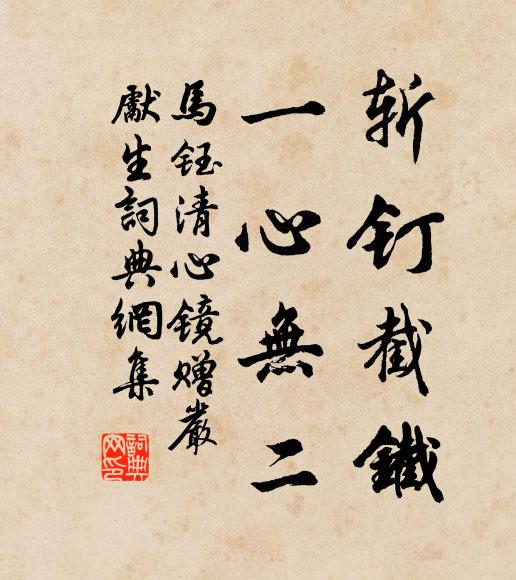 斬釘截鐵
一心無二
馬鈺清心鏡贈嚴
獻生詞典網集
詞典网印